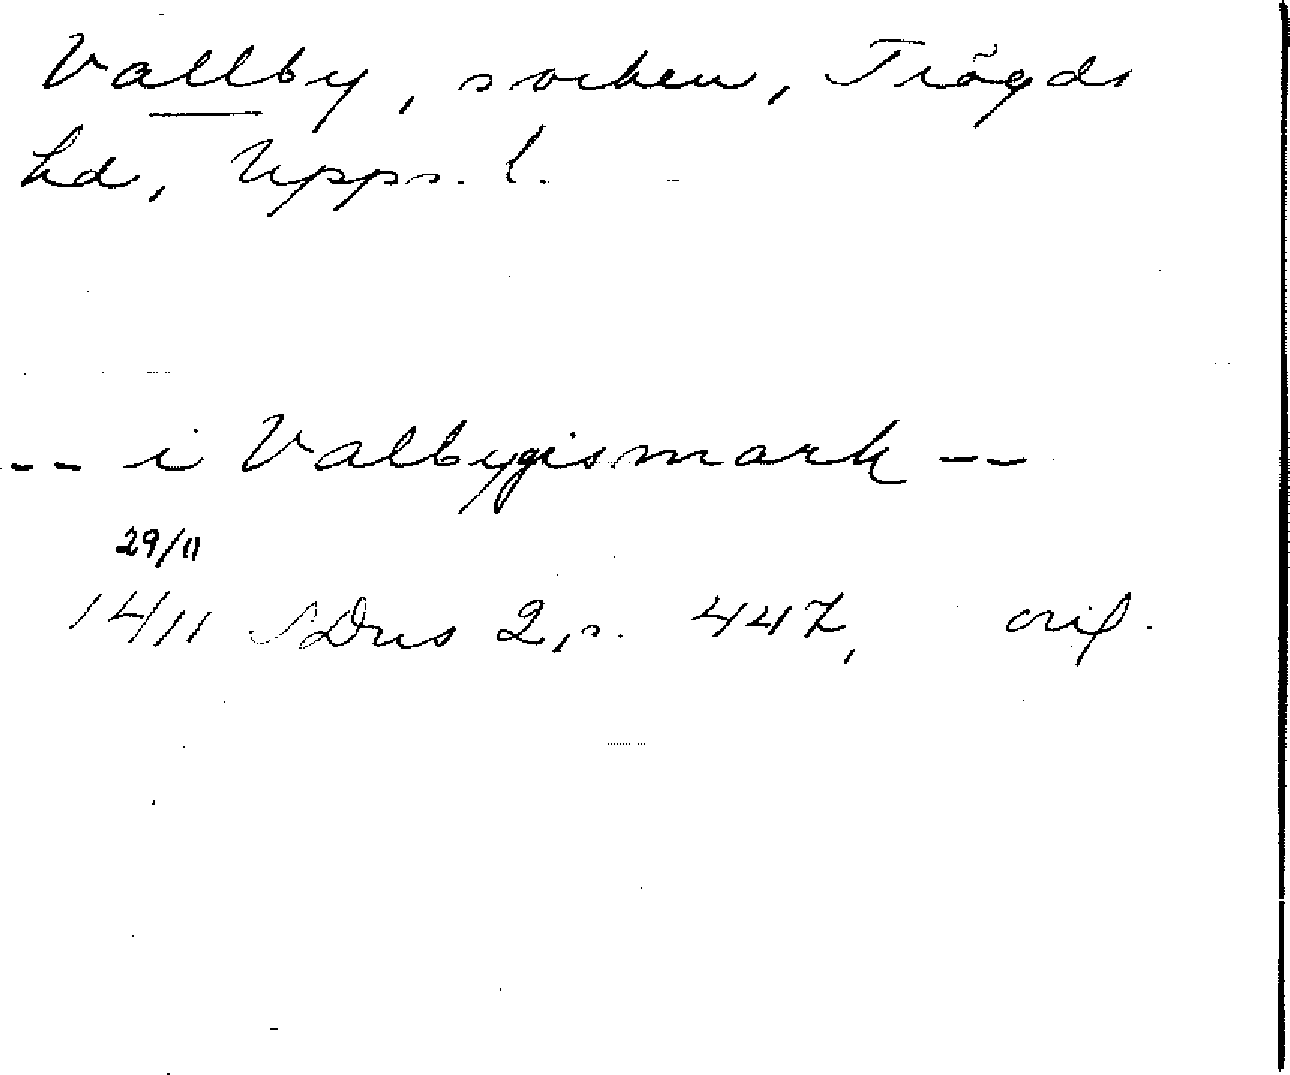 Vallby, socken, Trögds
hd, Upps. l.
-- i Valbygismark --
29/11
1411 SDns 2, s. 447, orig.